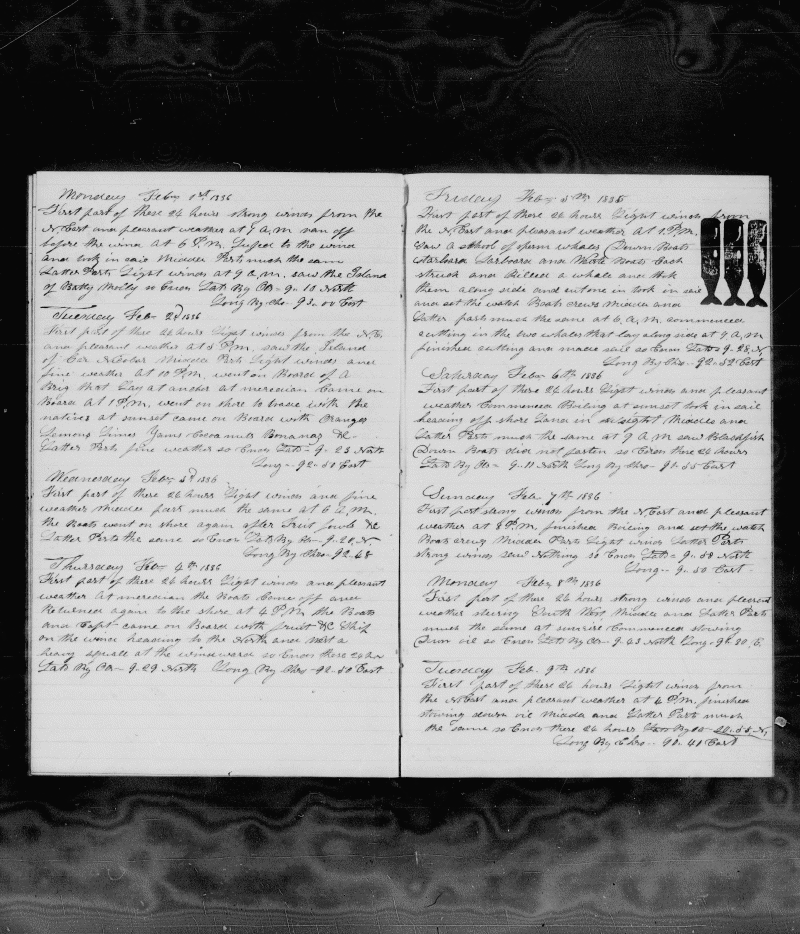 Monday Feby 1st 1886
First part of these 24 hours strong winds from the
N. East and pleasant weather at 7 A.M. ran off
before the wind at 6 P.M. Luffed to the wind
and took in sail Middle Part much the same
Latter Parts Light winds at 9 a.m. saw the Island
of Batty Molly so Ends Lat. By Ob 9-10 North
Long By Chro- 93-00 East
Tuesday Feb- 2d 1886
First part of these 24 hours Light winds from the N.E.
and pleasant weather at 5 P.M. saw the Island
of Car Nicobar Middle Part Light winds and
fine weather at 10 P.M. went on Board of a
Brig that Lay at anchor at meredian Came on
Board at 1 P.M. went on shore to trade with the
natives at sunset came on Board with Oranges
Lemons Limes Yams Cocoanuts Bonanas &c
Latter Part fine weather so Ends Lat- 9-23 North
Long- 92-50 East
Wednesday Feby 3d 1886
First part of these 24 hours Light winds and fine
weather Middle part much the same at 6 A.M.
the Boats went on shore again after Fruit fowls &c
Latter Parts the same so Ends Lat By Ob- 9-28 N.
Long By Chro- 92-48
Thursday Feb- 4th 1886
First part of these 24 hours Light winds and pleasant
weather At meredian the Boats Come off and
Returned again to the shore at 4 P.M. the Boats
and Capt- came on Board with fruit &c Ship
on the wind heading to the North and met a
heavy squall at the windward so Ends these 24 hr
Lat By Ob- 9-29 North Long By Chro- 92-50 East
Friday Feb- 5th 1886
First part of these 24 hours Light winds from
the N. East and pleasant weather At 1 P.M.
saw a school of sperm whales Down Boats
Starboard Larboard and Waist Boats Each
struck and Killed a whale and took
them along side and cut one in took in sail
and set the watch Boats crews Middle and
Latter parts much the same at 6 A.M. commenced
cutting in the two whales that lay along side at 9 A.M.
finished cutting and made sail so Ends Lat- 9-28 N.
Long By Chro- 92-52 East
Saturday Feb- 6th 1886
First part of these 24 hours Light winds and pleasant
weather Commenced Boiling at sunset took in sail
heading off shore Land in sight Middle and
Latter Parts much the same at 9 A.M. saw Blackfish
Down Boats did not fasten so Ends these 24 hours
Lat By Ob- 9-11 North Long By Chro- 91-55 East
Sunday Feb 7th 1886
First part strong winds from the N. East and pleasant
weather at 8 P.M. finished Boiling and set the watch
Boats crews Middle Parts Light winds Latter Parts
strong winds saw Nothing so Ends Lat- 9-58 North
Long- 9-50 East-
Monday Feby 8th 1886
First part of these 24 hours strong winds and pleasant
weather stering South West Middle and Latter Parts
much the same at sunrise Commenced stowing
Down oil so Ends Lat By Ob- 9-43 North Long- 9-20 E.
Tuesday Feb- 9th 1886
First part of these 24 hours Light winds from
the N East and pleasant weather at 6 P.M. finished
stowing down oil Middle and Latter Parts much
the same so Ends these 24 hours Lat By Ob 10-55 N.
Long By Chro- 90-41 East